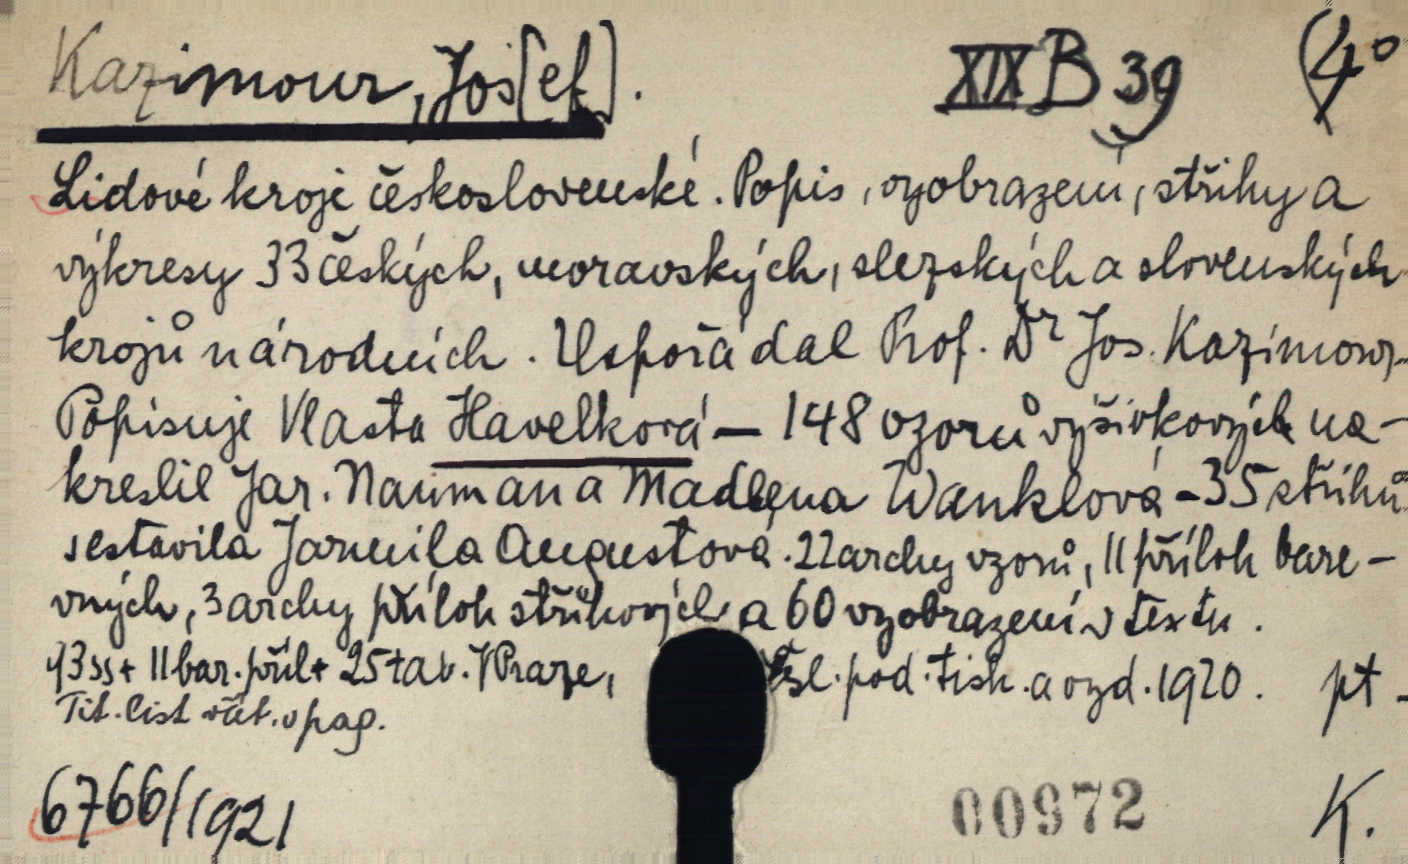 Kazimour, Jos[ef]. XIX B 39 (4°
Lidové kroje československé. Popis, vyobrazení, střihy a
výkresy 33 českých, moravských, slezských a slovenských
krojů národních. Uspořádal Prof. Dr Jos. Kazimour.
Popisuje Vlasta Havelková — 148 vzorů vyšívkových na-
kreslil Jar. Nauman a Madlena Wanklová - 35 střihů
sestavila Jarmila Augustova. 22 archy vzorů, 11 příloh bare-
vných, 3 archy příloh střihových a 60 vyobrazení v textu.
43 ss + 11 bar. příl + 25 tab. V Praze, Čsl. pod. tisk. a vyd. 1920. pt -
Tit. list včet. v pag.
6766/1921 00972 K.